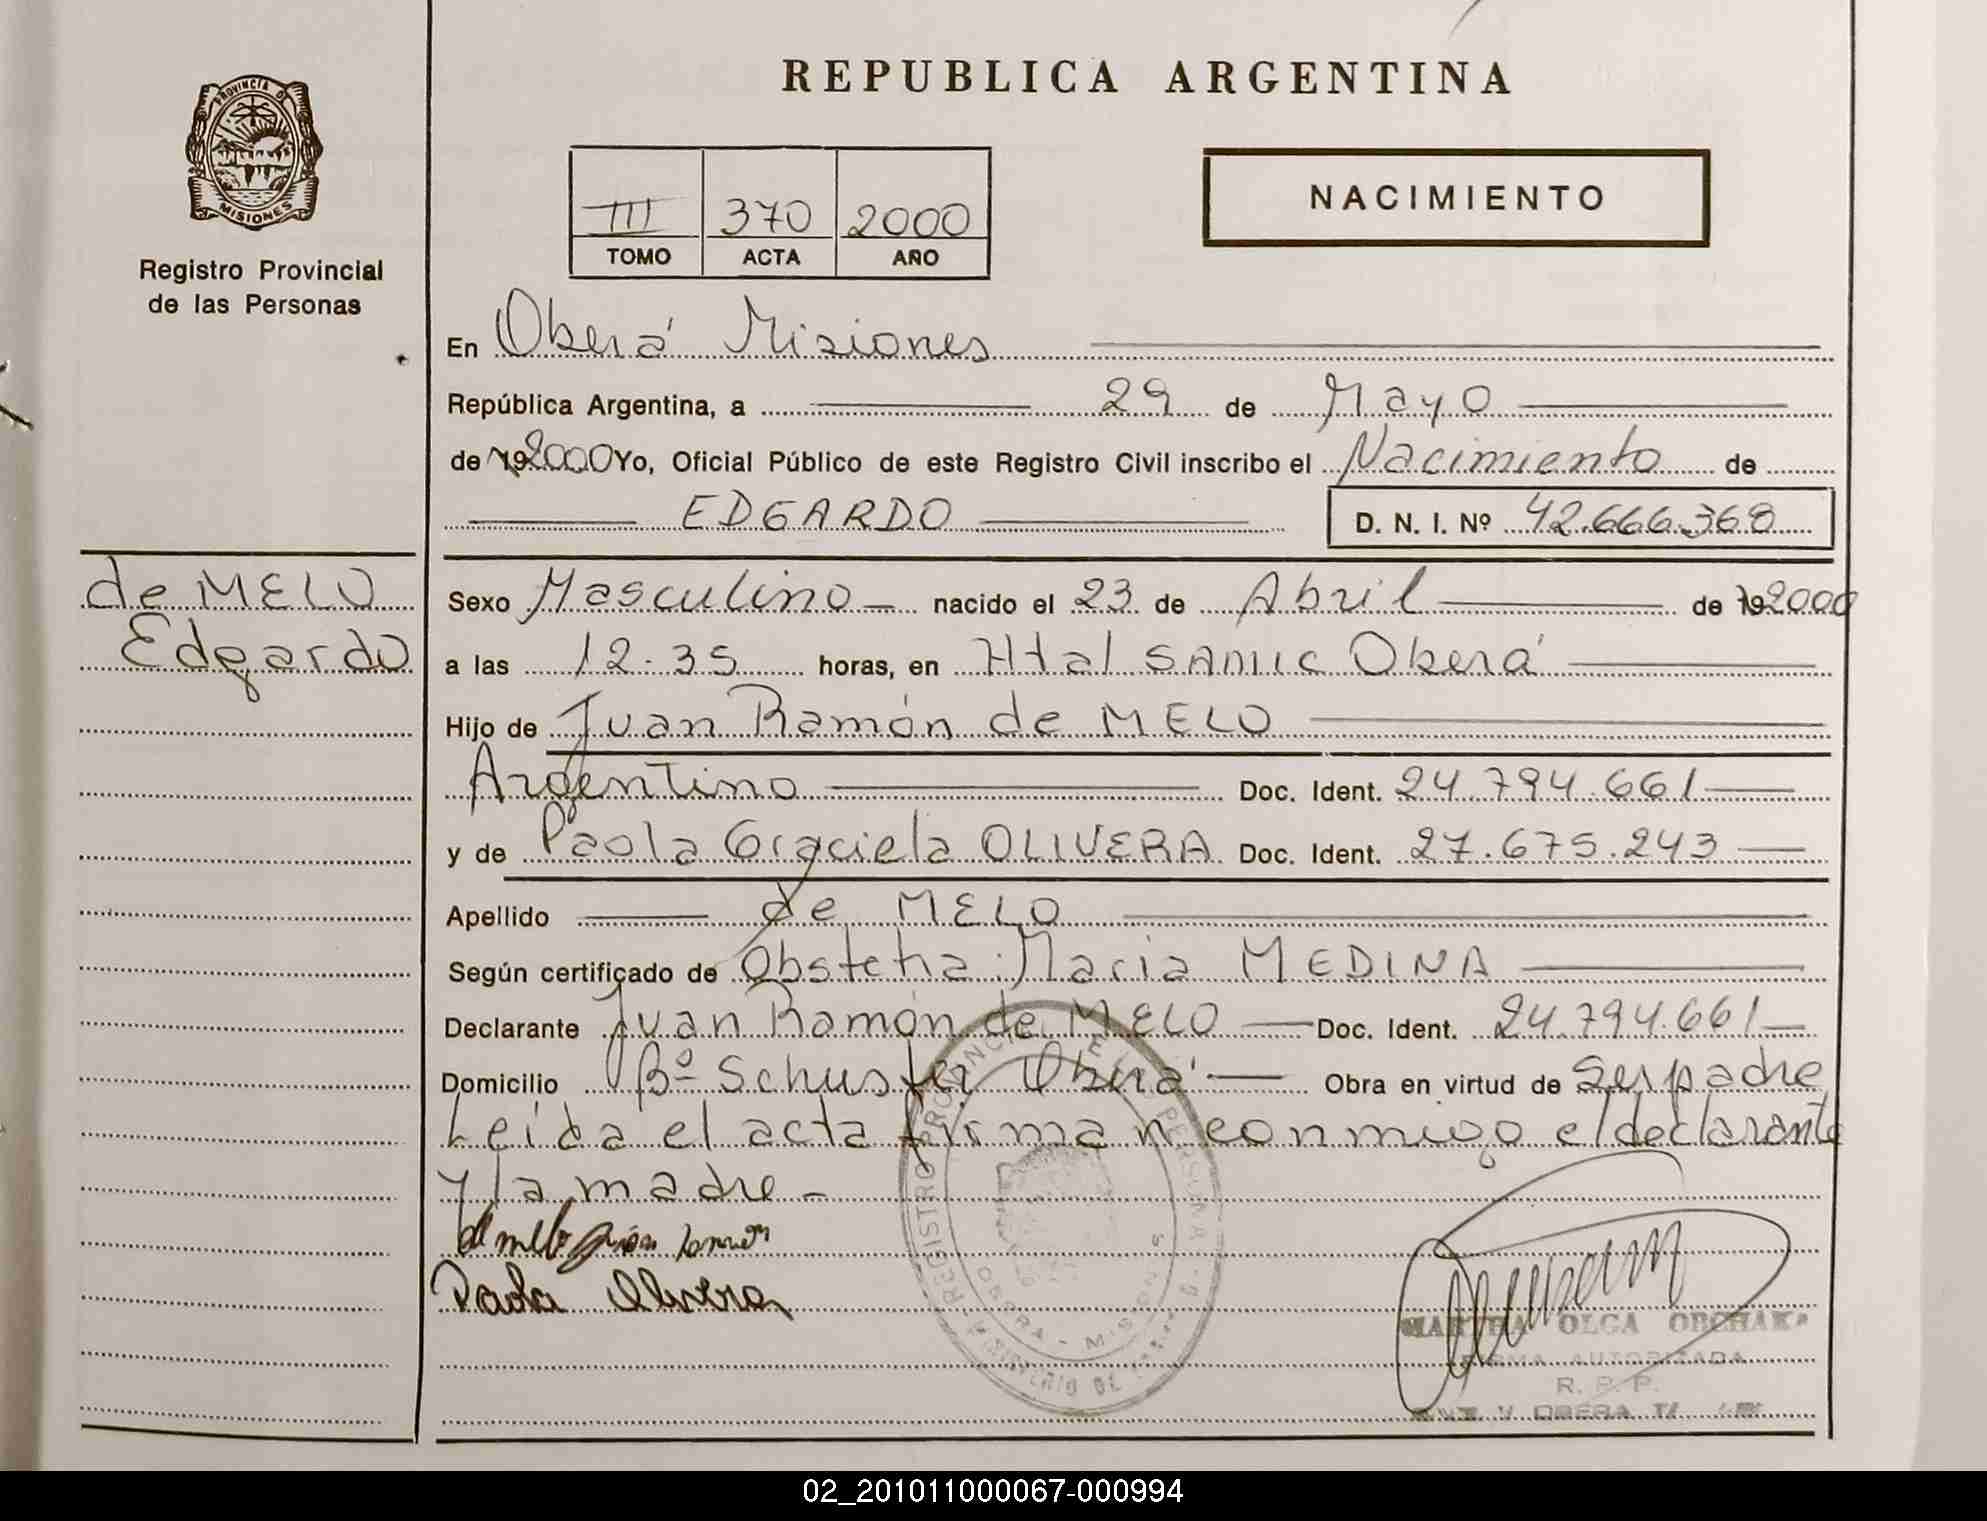 REPUBLICA ARGENTINA
PROVINCIA DE
MISIONES
Registro Provincial
de las Personas
III 370 2000
TOMO ACTA AÑO
NACIMIENTO
En Oberá Misiones
República Argentina, a 29 de Mayo
de 192000 Yo, Oficial Público de este Registro Civil inscribo el Nacimiento de
EDGARDO D. N. I. Nº 42.666.368
de MELO
Edgardo
Sexo Masculino nacido el 23 de Abril de 192000
a las 12.35 horas, en Htal SAMIC Oberá
Hijo de Juan Ramón de MELO
Argentino Doc. Ident. 24.794.661
y de Paola Graciela OLIVERA Doc. Ident. 27.675.243
Apellido de MELO
Según certificado de Obstetra Maria MEDINA
Declarante Juan Ramón de MELO Doc. Ident. 24.794.661
Domicilio Bº Schuster Oberá Obra en virtud de ser padre
Leida el acta firman conmigo el declarante
y la madre
de melo
Paola Olivera
REGISTRO PROVINCIAL DE LAS PERSONAS
OBERA - MISIONES
MINISTERIO DE
MARTHA OLGA
FIRMA AUTORIZADA
R. P. P.
OBERA
02_201011000067-000994